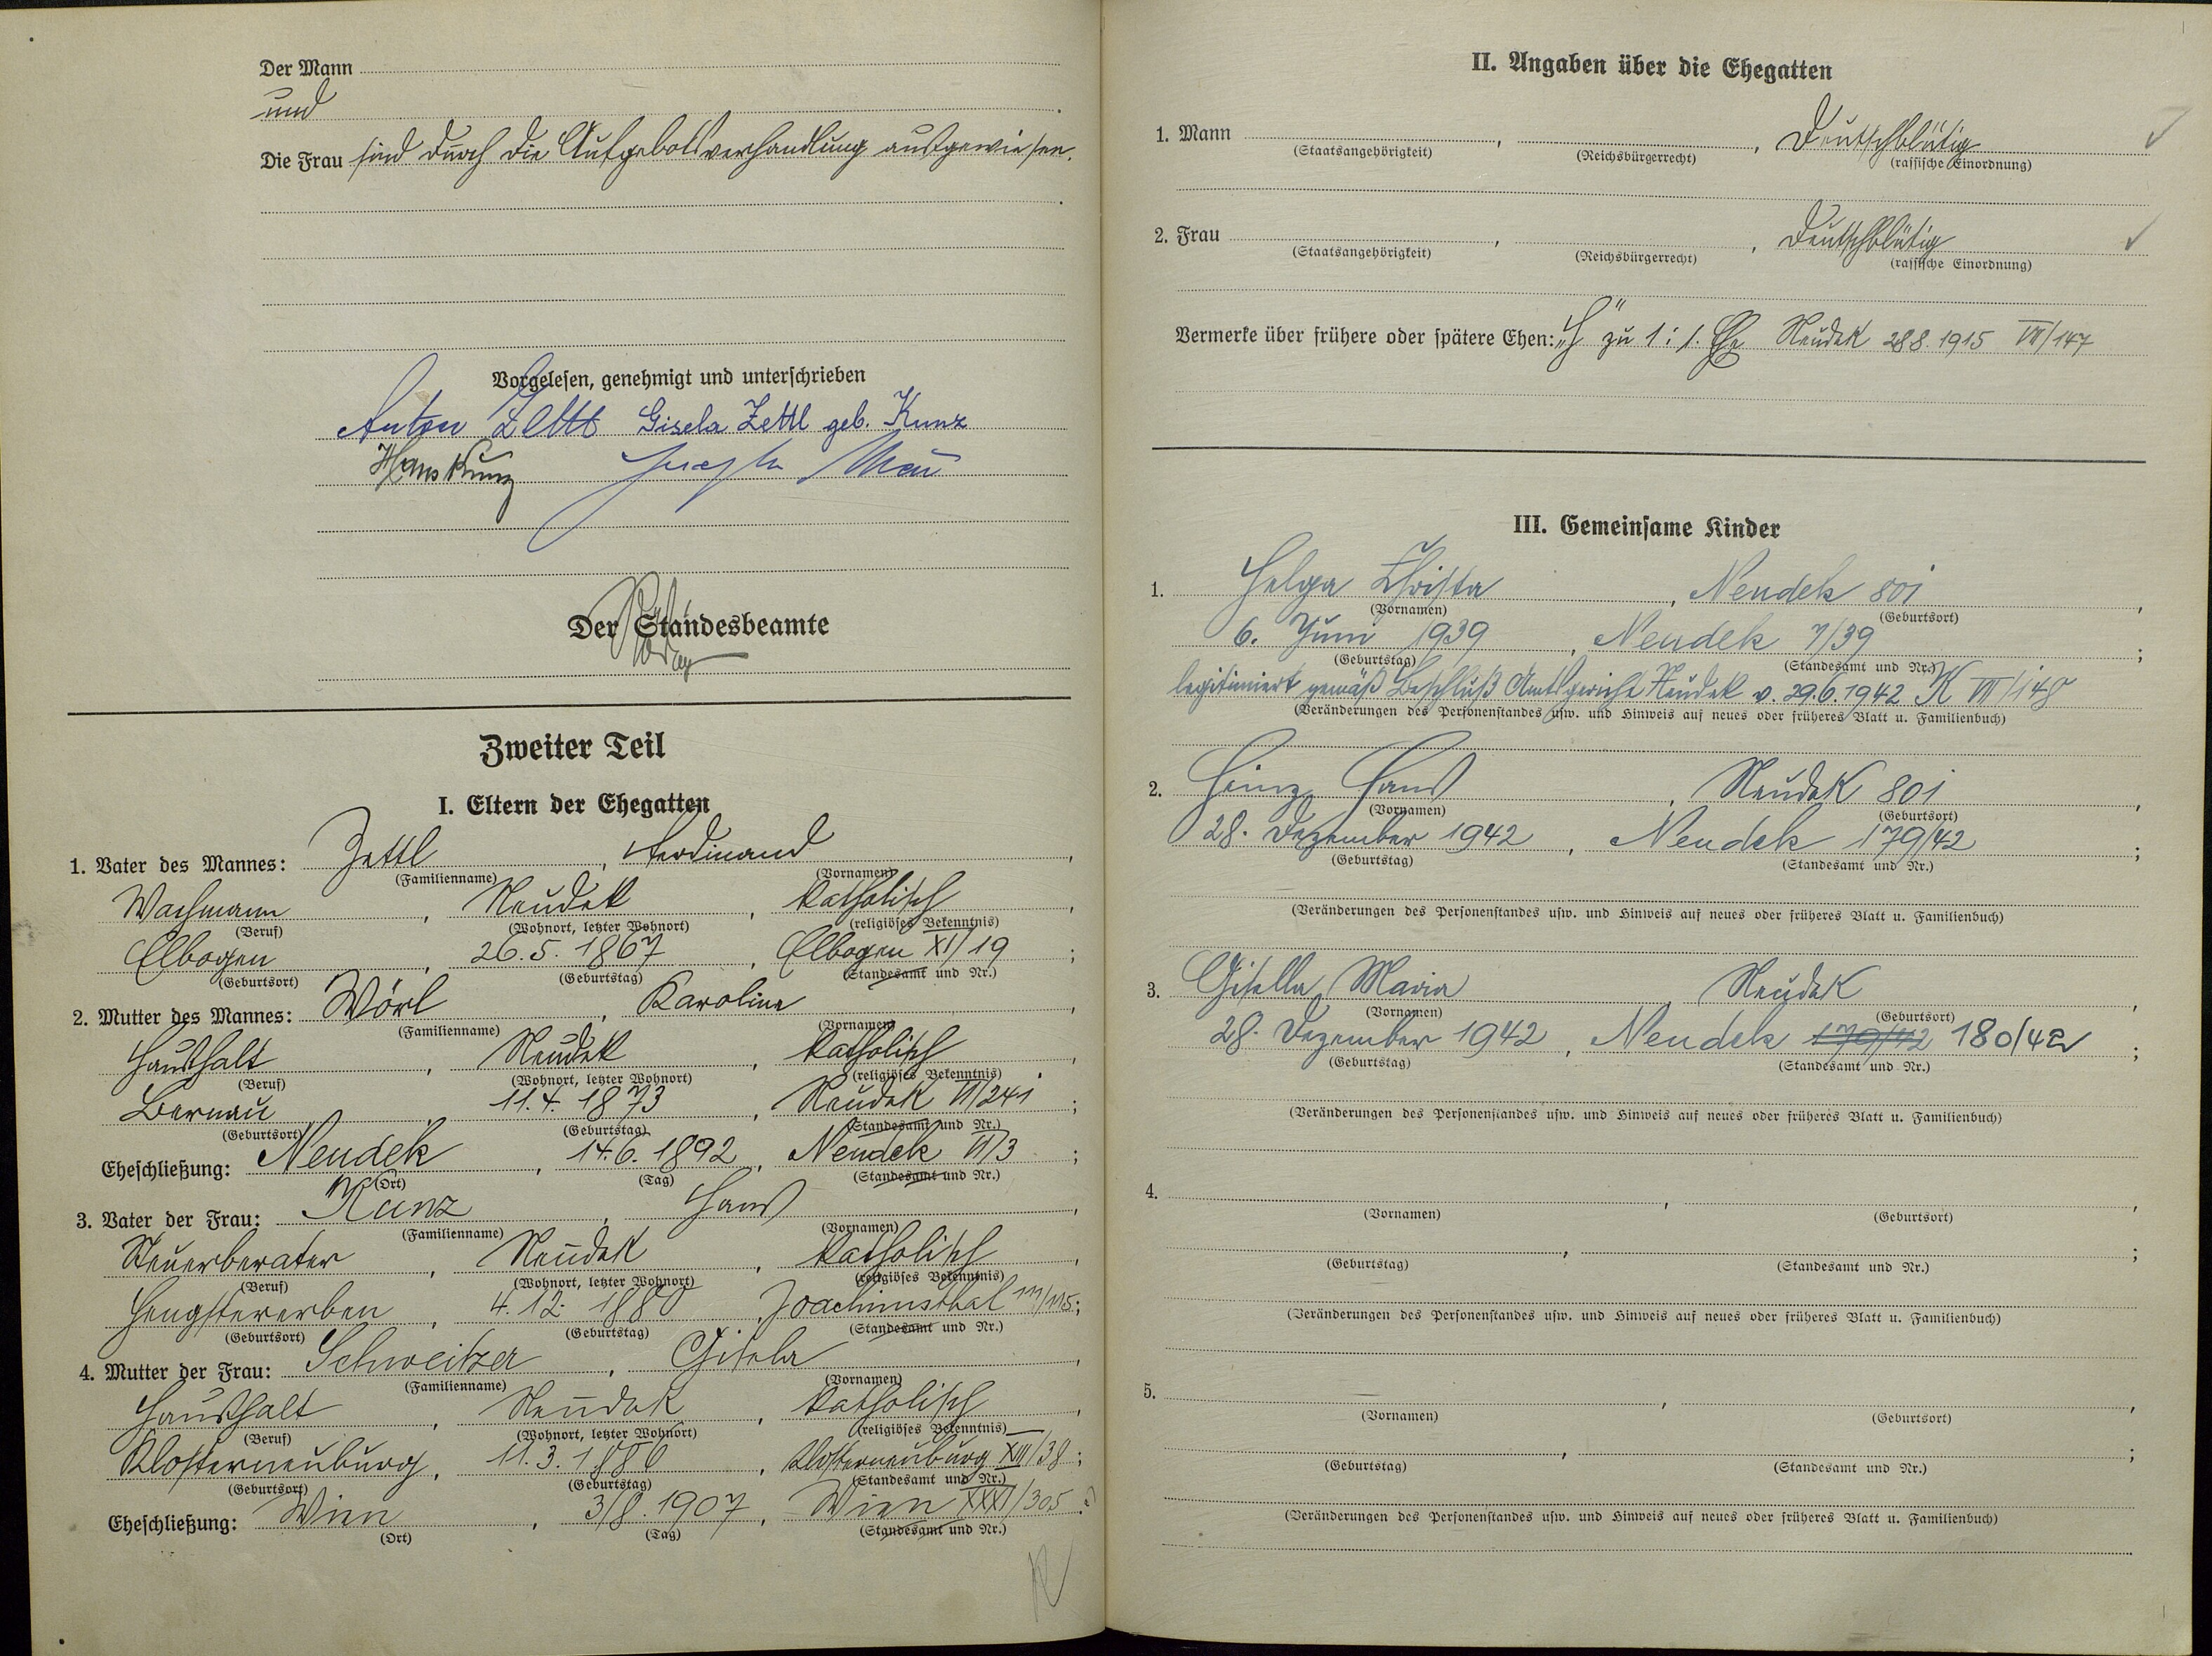 Der Mann
und
Die Frau sind durch die Aufgebotsverhandlung ausgewiesen.
Vorgelesen, genehmigt und unterschrieben
Anton Zettl Gisela Zettl geb. Kunz
Hans Kunz
Der Standesbeamte
Zweiter Teil
I. Eltern der Ehegatten
1. Vater des Mannes: Zettl, Ferdinand,
(Familienname) (Vornamen)
Wachmann, Neudek, katholisch,
(Beruf) (Wohnort, letzter Wohnort) (religiöses Bekenntnis)
Elbogen, 26.5.1867, Elbogen XI/19;
(Geburtsort) (Geburtstag) (Standesamt und Nr.)
2. Mutter des Mannes: Wörl, Karoline,
(Familienname) (Vornamen)
Haushalt, Neudek, katholisch,
(Beruf) (Wohnort, letzter Wohnort) (religiöses Bekenntnis)
Bernau, 11.4.1873, Neudek VI/241;
(Geburtsort) (Geburtstag) (Standesamt und Nr.)
Eheschließung: Neudek, 14.6.1892, Neudek VI/3;
(Ort) (Tag) (Standesamt und Nr.)
3. Vater der Frau: Kunz, Hans,
(Familienname) (Vornamen)
Steuerberater, Neudek, katholisch,
(Beruf) (Wohnort, letzter Wohnort) (religiöses Bekenntnis)
Hengstererben, 4.12.1880, Joachimsthal
(Geburtsort) (Geburtstag) (Standesamt und Nr.)
4. Mutter der Frau: Schweitzer, Gisela,
(Familienname) (Vornamen)
Haushalt, Neudek, katholisch,
(Beruf) (Wohnort, letzter Wohnort) (religiöses Bekenntnis)
Klosterneuburg, 11.3.1886, Klosterneuburg XIII/38;
(Geburtsort) (Geburtstag) (Standesamt und Nr.)
Eheschließung: Wien, 3/8.1907, Wien XXXI/305
(Ort) (Tag) (Standesamt und Nr.)
II. Angaben über die Ehegatten
1. Mann , , Deutschblütig
(Staatsangehörigkeit) (Reichsbürgerrecht) (rassische Einordnung)
2. Frau , , Deutschblütig
(Staatsangehörigkeit) (Reichsbürgerrecht) (rassische Einordnung)
Vermerke über frühere oder spätere Ehen: „H" zu 1: 1. Ehe Neudek 28.8.1915 VII/147
III. Gemeinsame Kinder
1. Helga Christa, Neudek 801,
(Vornamen) (Geburtsort)
6. Juni 1939, Neudek 7/39;
(Geburtstag) (Standesamt und Nr.)
legitimiert gemäß Beschluß Amtsgericht Neudek v. 29.6.1942 K VII/148
(Veränderungen des Personenstandes usw. und Hinweis auf neues oder früheres Blatt u. Familienbuch)
2. Heinz Hans, Neudek 801,
(Vornamen) (Geburtsort)
28. Dezember 1942, Neudek 179/42;
(Geburtstag) (Standesamt und Nr.)
(Veränderungen des Personenstandes usw. und Hinweis auf neues oder früheres Blatt u. Familienbuch)
3. Gisella Maria, Neudek,
(Vornamen) (Geburtsort)
28. Dezember 1942, Neudek 179/42 180/42;
(Geburtstag) (Standesamt und Nr.)
(Veränderungen des Personenstandes usw. und Hinweis auf neues oder früheres Blatt u. Familienbuch)
4. , ,
(Vornamen) (Geburtsort)
, ;
(Geburtstag) (Standesamt und Nr.)
(Veränderungen des Personenstandes usw. und Hinweis auf neues oder früheres Blatt u. Familienbuch)
5. , ,
(Vornamen) (Geburtsort)
, ;
(Geburtstag) (Standesamt und Nr.)
(Veränderungen des Personenstandes usw. und Hinweis auf neues oder früheres Blatt u. Familienbuch)